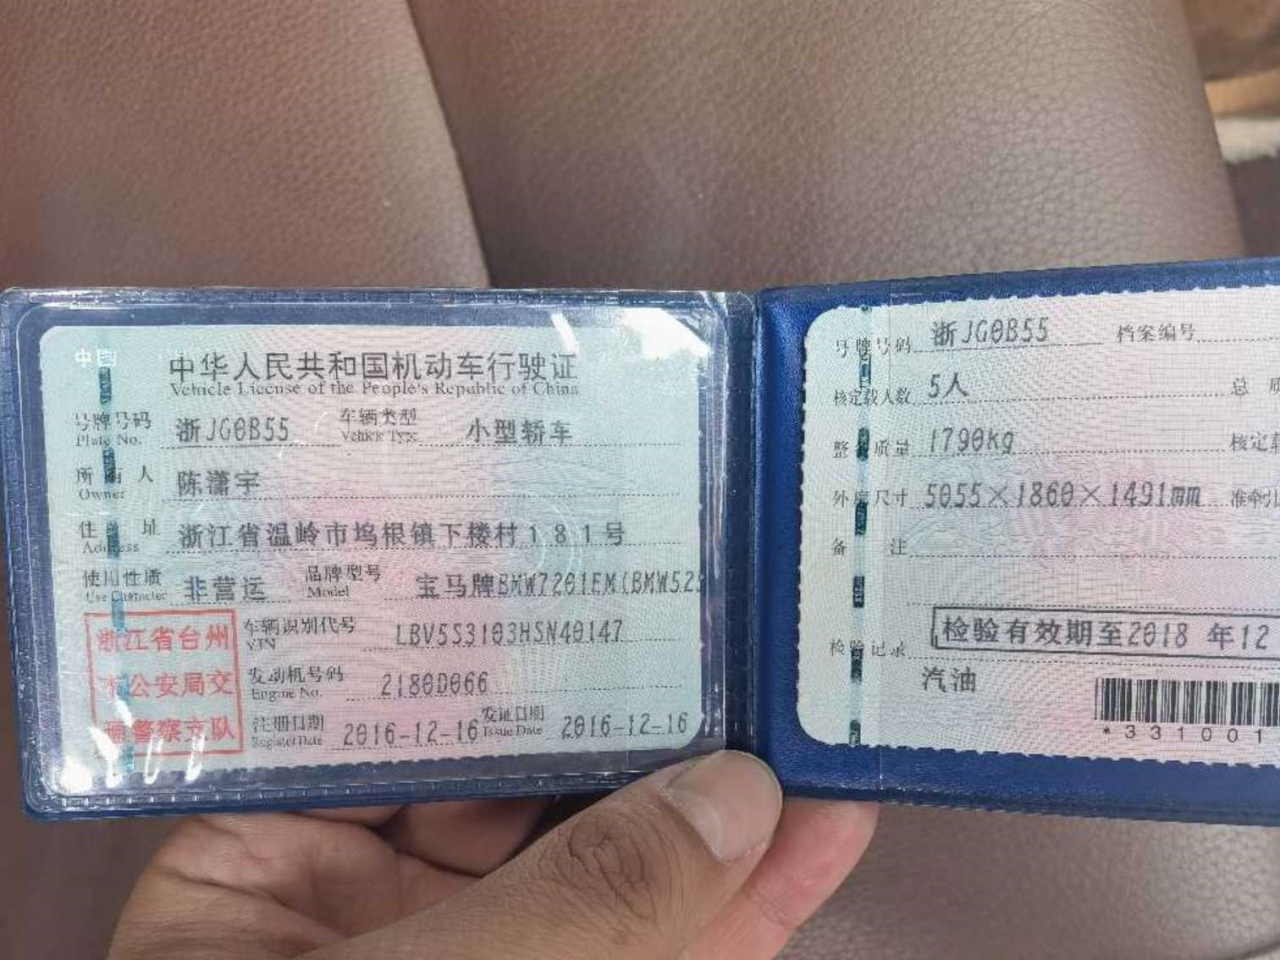 中国
中华人民共和国机动车行驶证
Vehicle License of the People's Republic of China
号牌号码 浙JG0B55 车辆类型 小型轿车
Plate No. Vehicle Type
所有人 陈潇宇
Owner
住址 浙江省温岭市坞根镇下楼村181号
Address
使用性质 非营运 品牌型号 宝马牌BMW7201EM(BMW525
Use Character Model
浙江省台州
市公安局交
通警察支队
车辆识别代号 LBV5S3103HSN40147
VIN
发动机号码 2180D066
Engine No.
注册日期 2016-12-16 发证日期 2016-12-16
Register Date Issue Date
号牌号码 浙JG0B55 档案编号
核定载人数 5人 总
整备质量 1790kg 核定载
外廓尺寸 5055×1860×1491mm 准牵引
备注
检验有效期至2018 年12
检验记录
汽油
*331001